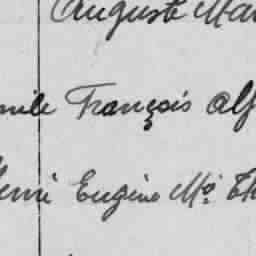 Auguste Ma
mile François Alf
Henri Eugène Mⁱᵉ Th